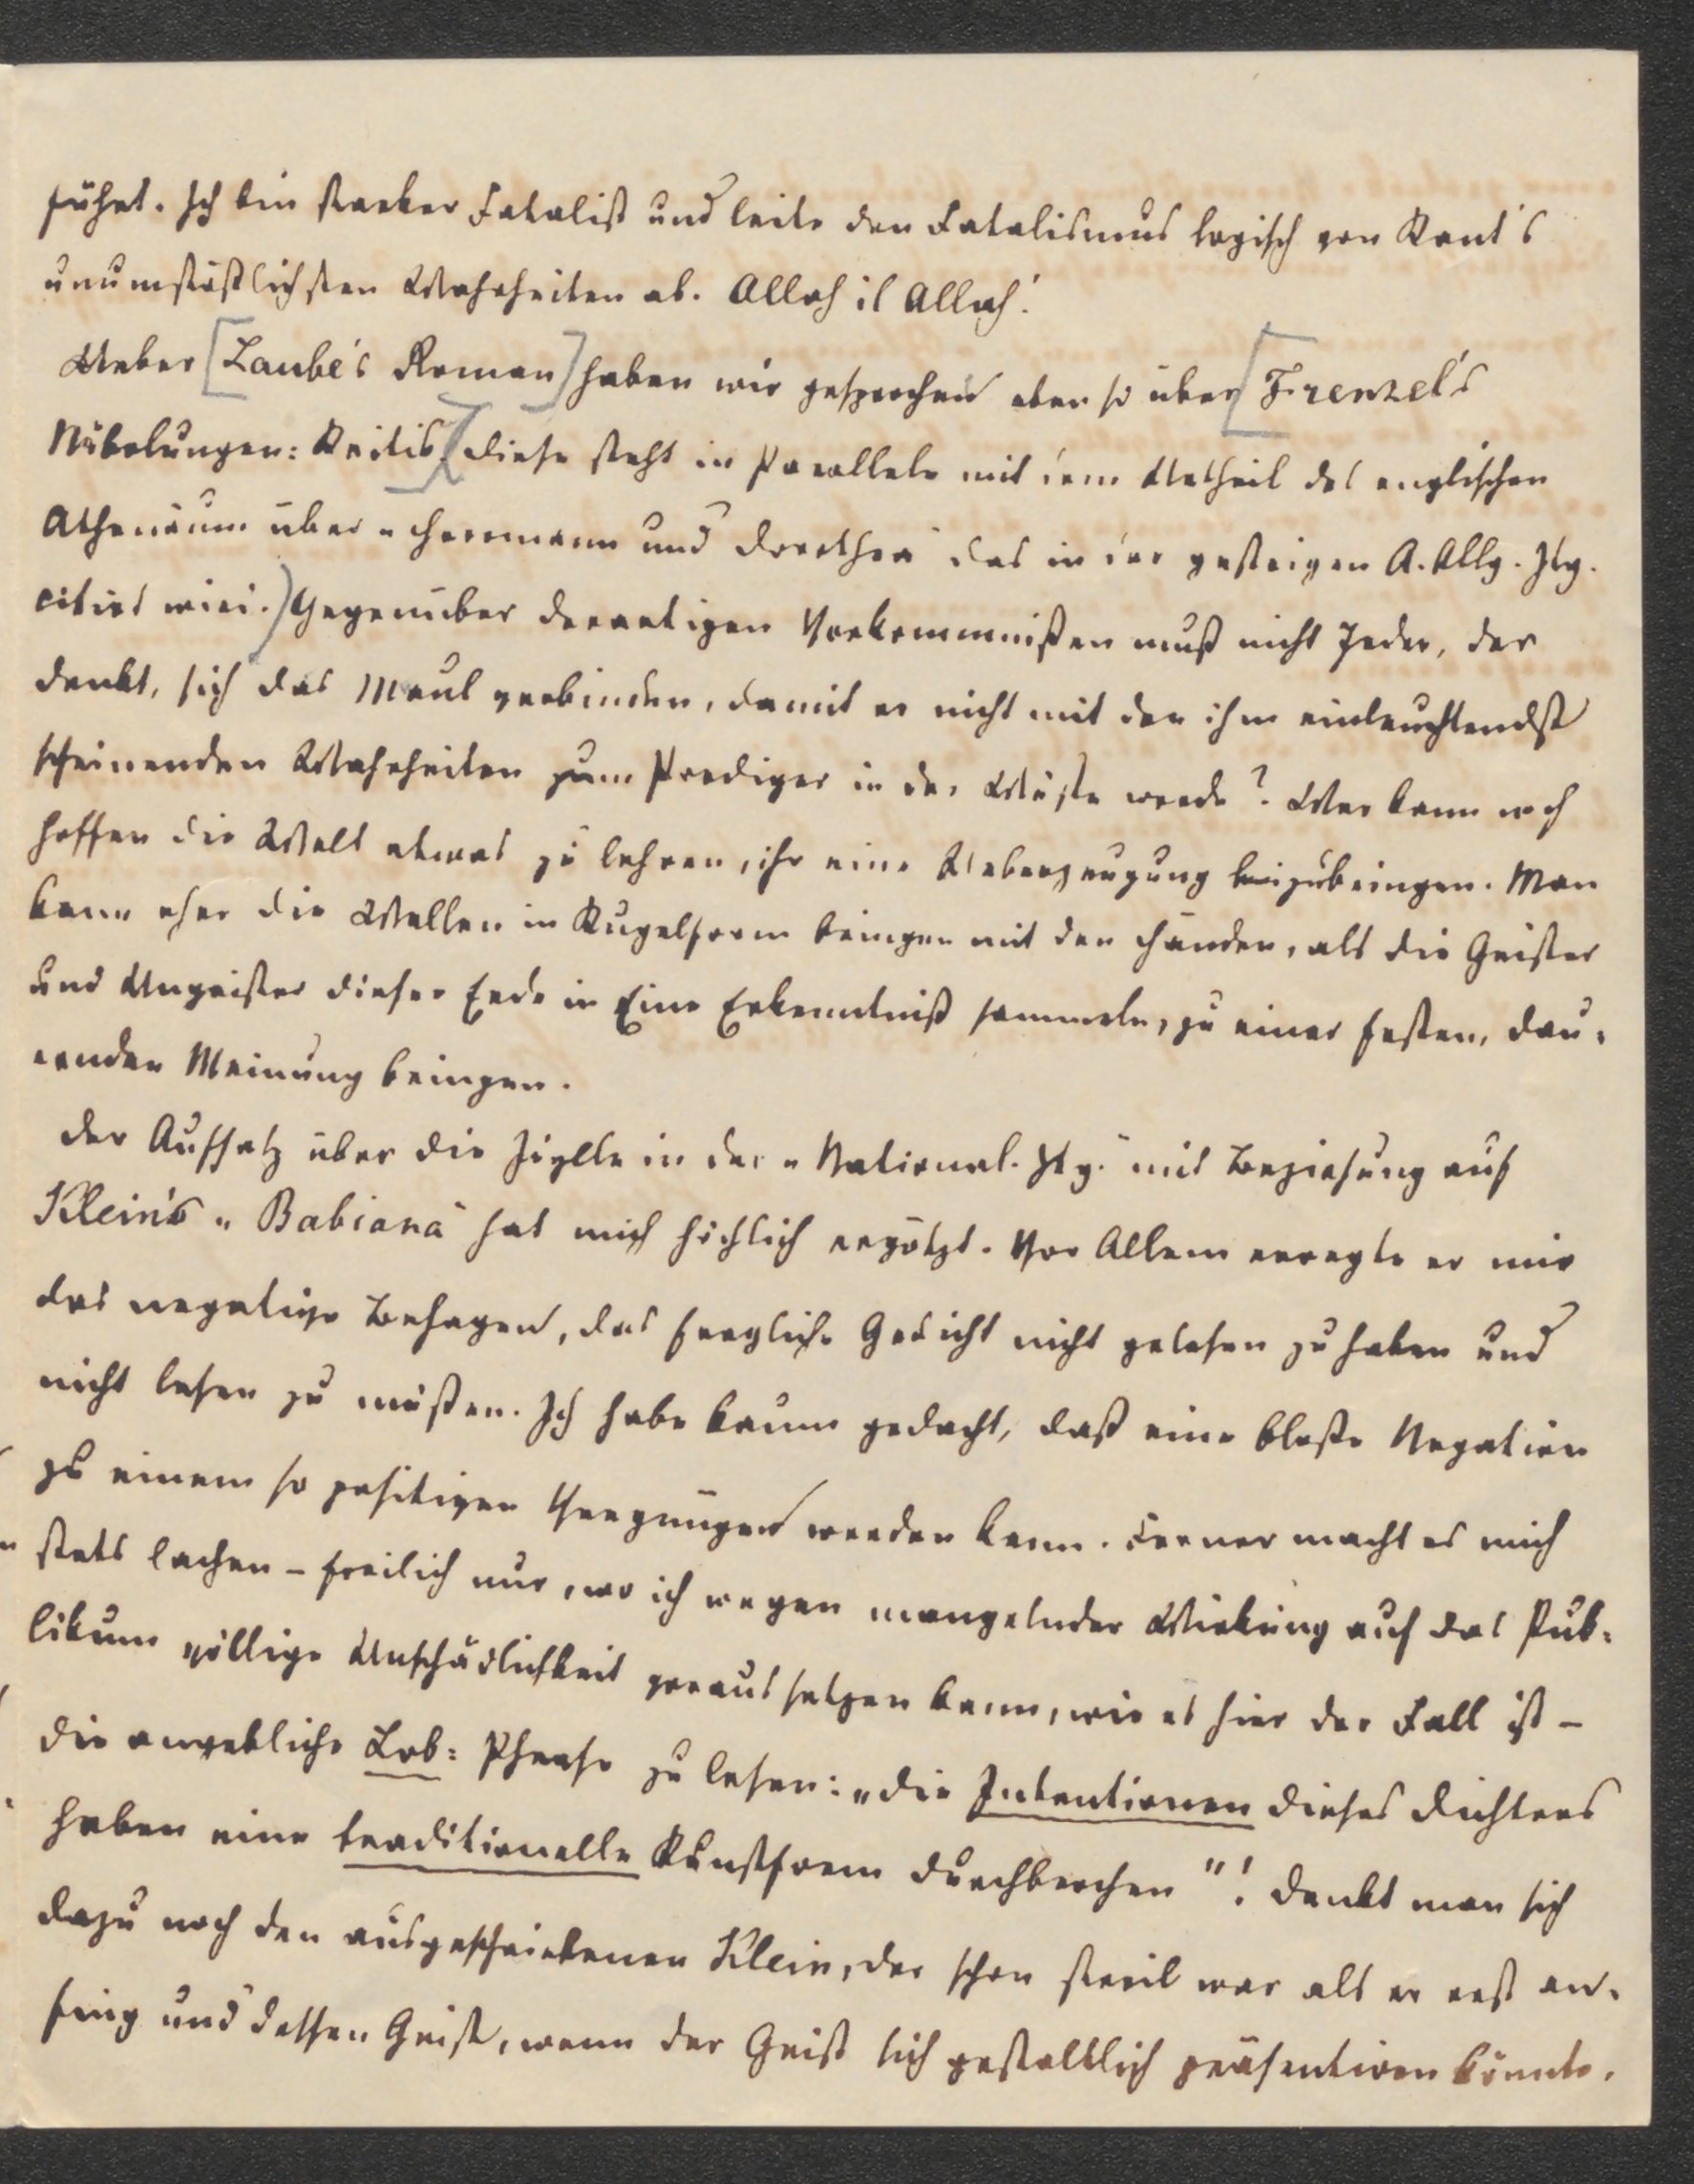 führt. Ich bin starker Fatalist und leite den Fatalismus logisch von Kant's
unumstößlichsten Wahrheiten ab. Allah il Allah!
Ueber [Laube's Roman] haben wir gesprochen eben so über [Frenzel's
Nibelungen: Kritik.] Diese steht in Parallele mit dem Urtheil des englischen
Athenäum über „Herrmann und Dorothea“ das in der gestrigen A. Allg. Ztg.
citirt wird.) Gegenüber derartigen Vorkommnißen muß nicht Jeder, der
denkt, sich das Maul verbinden, damit er nicht mit den ihm einleuchtendst
scheinenden Wahrheiten zum Prediger in der Wüste werde? Wer kann noch
hoffen die Welt etwas zu lehren, ihr eine Ueberzeugung beizubringen. Man
kann eher die Wellen in Kugelform bringen mit den Händen, als die Geister
und Ungeister dieser Erde in Eine Erkenntniß sammeln, zu einer festen, dau-
ernden Meinung bringen.
Der Aufsatz über die Idylle in der „National-Ztg.“ mit Beziehung auf
Klein's „Babiana“ hat mich höchlich ergötzt. Vor Allem erregte er mir
das negative Behagen, das fragliche Gedicht nicht gelesen zu haben und
nicht lesen zu müßen. Ich habe kaum gedacht, daß eine bloße Negation
zu einem so positiven Vergnügen werden kann. Ferner macht es mich
stets lachen – freilich nur, wo ich wegen mangelnder Wirkung auf das Pub-
likum völlige Unschädlichkeit voraussetzen kann, wie es hier der Fall ist –
die angebliche Lob: Phrase zu lesen: „die Intentionen dieses Dichters
haben eine traditionelle Kunstform durchbrochen“! Denkt man sich
dazu noch den ausgeschriebenen Klein, der schon steril war als er erst an-
fing und dessen Geist, wenn der Geist sich gestaltlich präsentiren könnte,